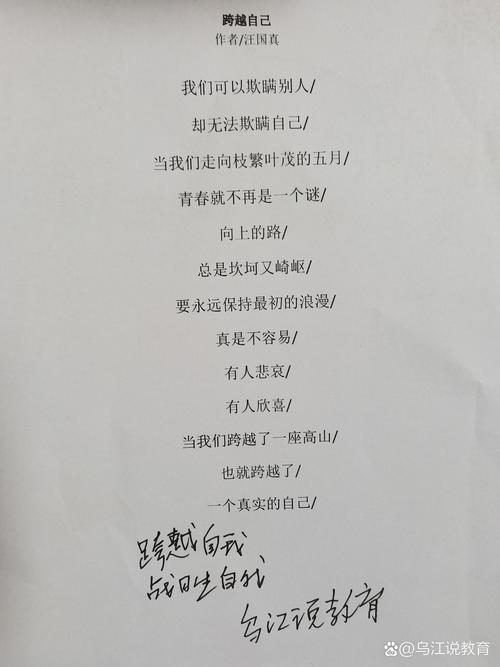 跨越自己
作者/汪国真
我们可以欺瞒别人/
却无法欺瞒自己/
当我们走向枝繁叶茂的五月/
青春就不再是一个谜/
向上的路/
总是坎坷又崎岖/
要永远保持最初的浪漫/
真是不容易/
有人悲哀/
有人欣喜/
当我们跨越了一座高山/
也就跨越了/
一个真实的自己/
跨越自我
战胜自我
乌江说教育
乌江说教育